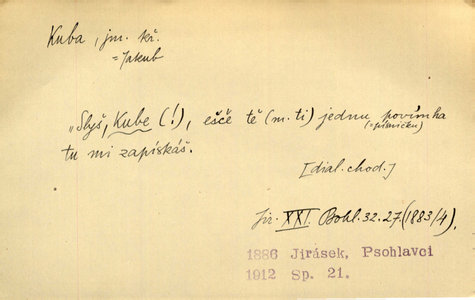 Kuba, jm. kř.
= Jakub
„Slyš, Kube (!), ešče tě (m. ti) jednu povímha
(= písničku)
tu mi zapískáš.
[dial. chod.]
Jir. XXI. Bohl. 32. 27. (1883/4).
1886 Jirásek, Psohlavci
1912 Sp. 21.